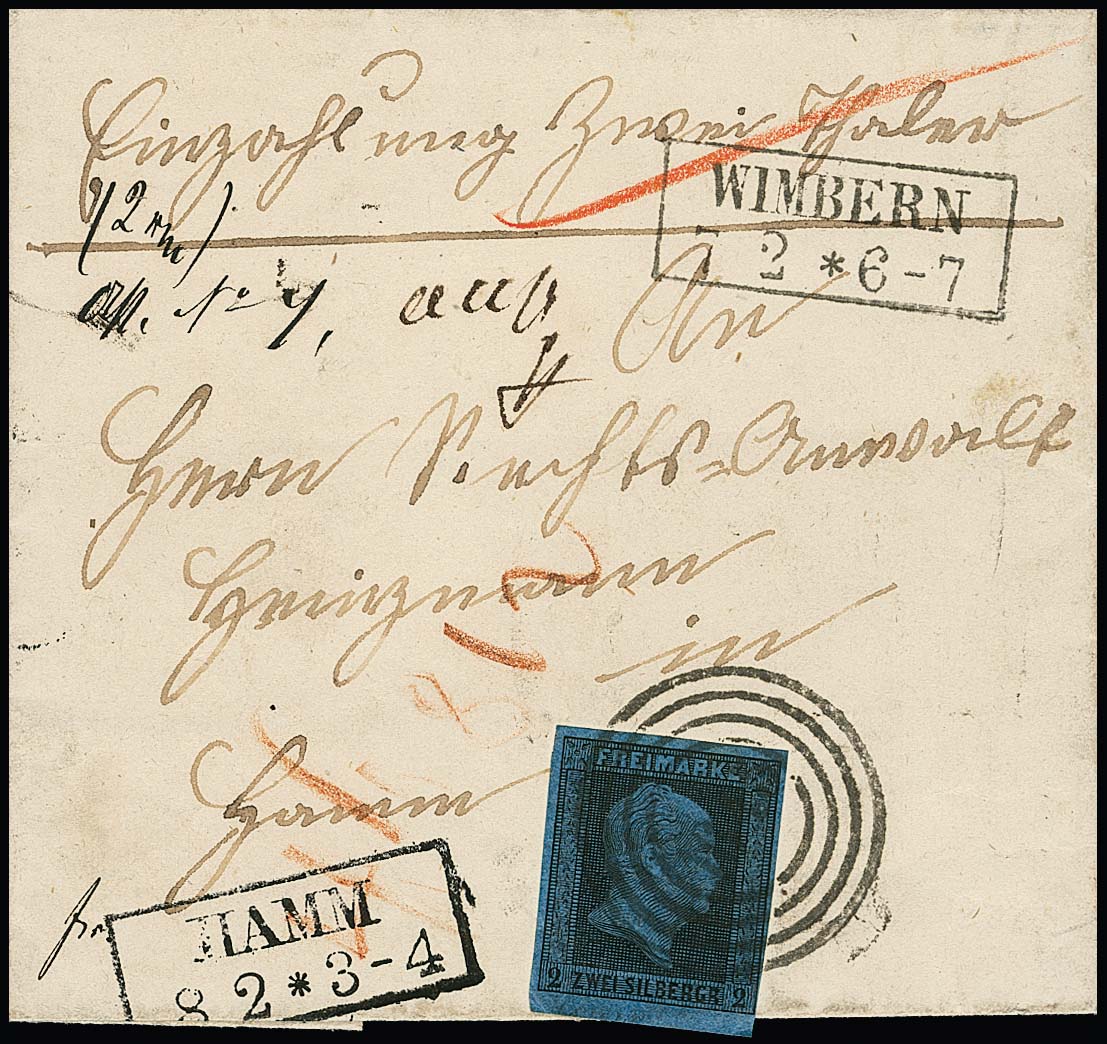 Einzahlung Zwei Thaler
WIMBERN
7 2 * 6-7
(2 )
No
An
Herrn Rechts-Anwalt
Heinzmann
in
Hamm
FREIMARKE
2 ZWEI SILBERGR 2
HAMM
8 2 * 3-4